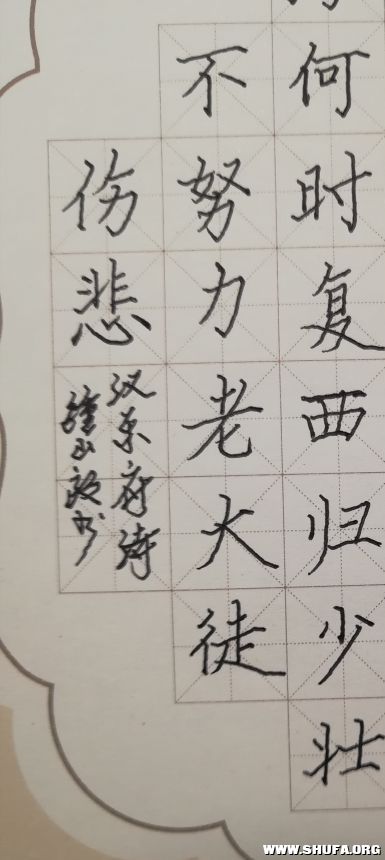 何时复西归少壮
不努力老大徒
伤悲
汉乐府诗
山 书
WWW.SHUFA.ORG